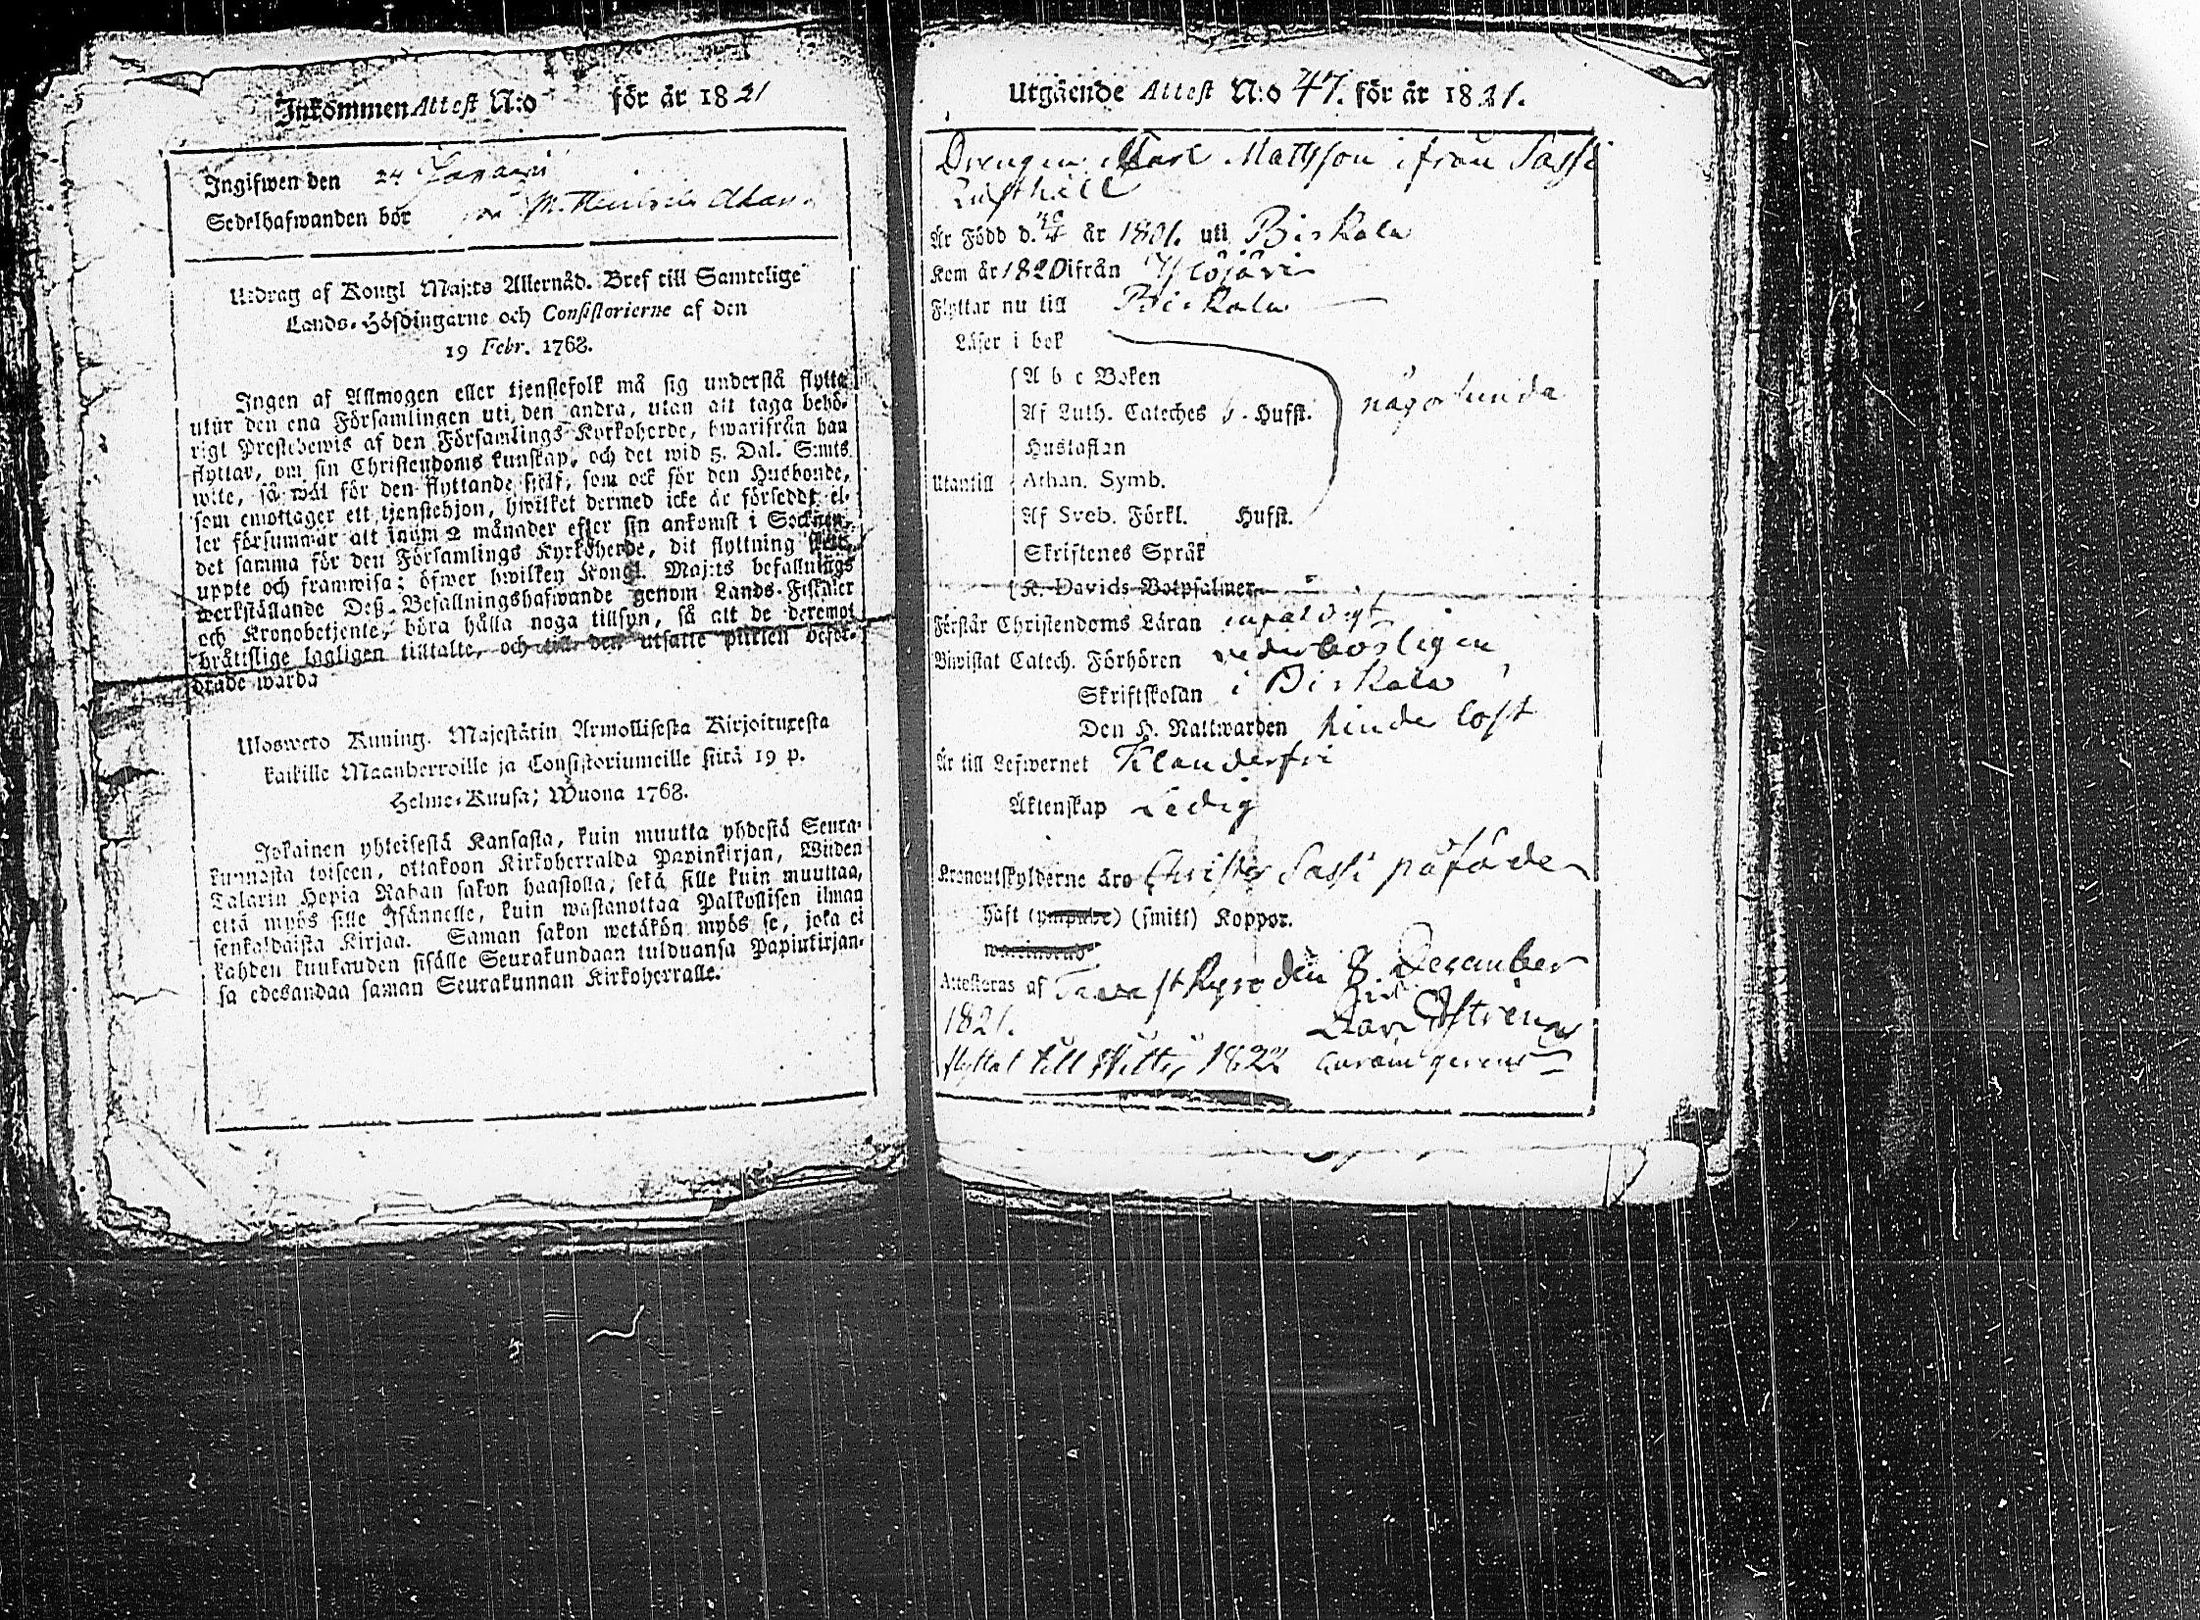 Inkommen Attest N:o för år 1821
Ingifwen den 24 Januari
Sedelhafwanden bör
Utdrag af Kongl Maj:ts Allernåd. Bref till Samtelige
Lands-Höfdingarne och Consistorierne af den
19 Febr. 1768.
Ingen af Allmogen eller tjenstefolk må sig understå flytta
utur den ena Församlingen uti den andra, utan att taga behö-
rigt Prestebewis af den Församlings Kyrkoherde, hwarifrån han
flyttar, om sin Christendoms kunskap, och det wid 5. Dal. S:mts
wite, så wäl för den flyttande sjelf, som ock för den Husbonde,
som emottager ett tjenstehjon, hwilket dermed icke är försedt el-
ler försummar att inum 2 månader efter sin ankomst i Socknen,
det samma för den Församlings Kyrkoherde, dit flyttning
uppte och framwisa: öfwer hwilken Kongl. Maj:ts befallnings
werkställande Deß Befallningshafwande genom Lands-Fiskaler
och Kronobetjente, böra hålla noga tillsyn, så att de deremot
brottslige lagligen tilltalte, och till den utsatte plikten befor-
drade warda
Ulosweto Kuning. Majestätin Armollisesta Kirjoituxesta
kaikille Maanherroille ja Consistoriumeille siitä 19 p.
Helme-Kuusa; Wuona 1768.
Jokainen yhteisestä Kansasta, kuin muutta yhdestä Seura-
kunnasta toiseen, ottakoon Kirkoherralda Papinkirjan, Wiiden
Talarin Hopia Rahan sakon haastolla, sekä sille kuin muuttaa,
että myös sille Isännelle, kuin wastanottaa Palkollisen ilman
senkaldaista Kirjaa. Saman sakon wetäkön myös se, joka ei
kahden kuukauden sisälle Seurakundaan tulduansa Papinkirjan-
sa edesandaa saman Seurakunnan Kirkoherralle.
Utgående Attest N:o 47. för år 1821.
Drengen Carl Mattsson ifrån Sassi
Rusthåll
Är Född d. år 1801. uti Birkala
Kom år 1820 ifrån Ylöjärvi
Flyttar nu till Birkala
Läser i bok
A b c Boken
Af Luth. Cateches Hufst. någorlunda
Hustaflan
Utantill Athan. Symb.
Af Sveb. Förkl. Hufst.
Skriftenes Språk
K. Davids Botpsalmer
Förstår Christendoms Läran enfaldigt
Biwistat Catech. Förhören vederborligen
Skriftskolan i Birkala
Den H. Nattwarden hinderlöst
Är till Lefwernet Klanderfri
Äktenskap Ledig
Kronoutskylderne äro Christer Sassi påförde
haft (ympade) (smitt) Koppor.
Attesteras af Tavastkyro den 8 December
1821.
flyttat till 1822